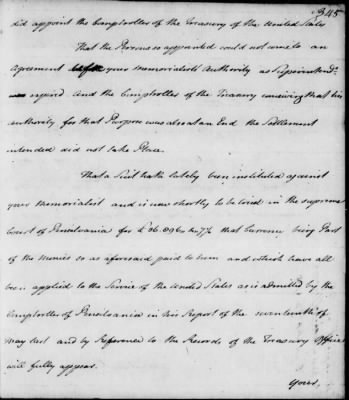 345
did appoint the Comptroller of the Treasury of the United States
That the Persons so appointed could not come to an
Agreement before your memorialists Authority as Superintendt.
expired and the Comptroller of the Treasury conceiving that his
authority for that Purpose was also at an End the Settlement
intended did not take Place.
That a Suit hath lately been instituted against
your memorialist and is now shortly to be tried in the supreme
Court of Pensilvania for that Sum being Part
of the Monies so as aforesaid paid to him and which have all
been applied to the Service of the United States as is admitted by the
Comptroller of Pensilvania in his Report of the seventeenth of
may last and by Reference to the Records of the Treasury Office
will fully appear.
Your